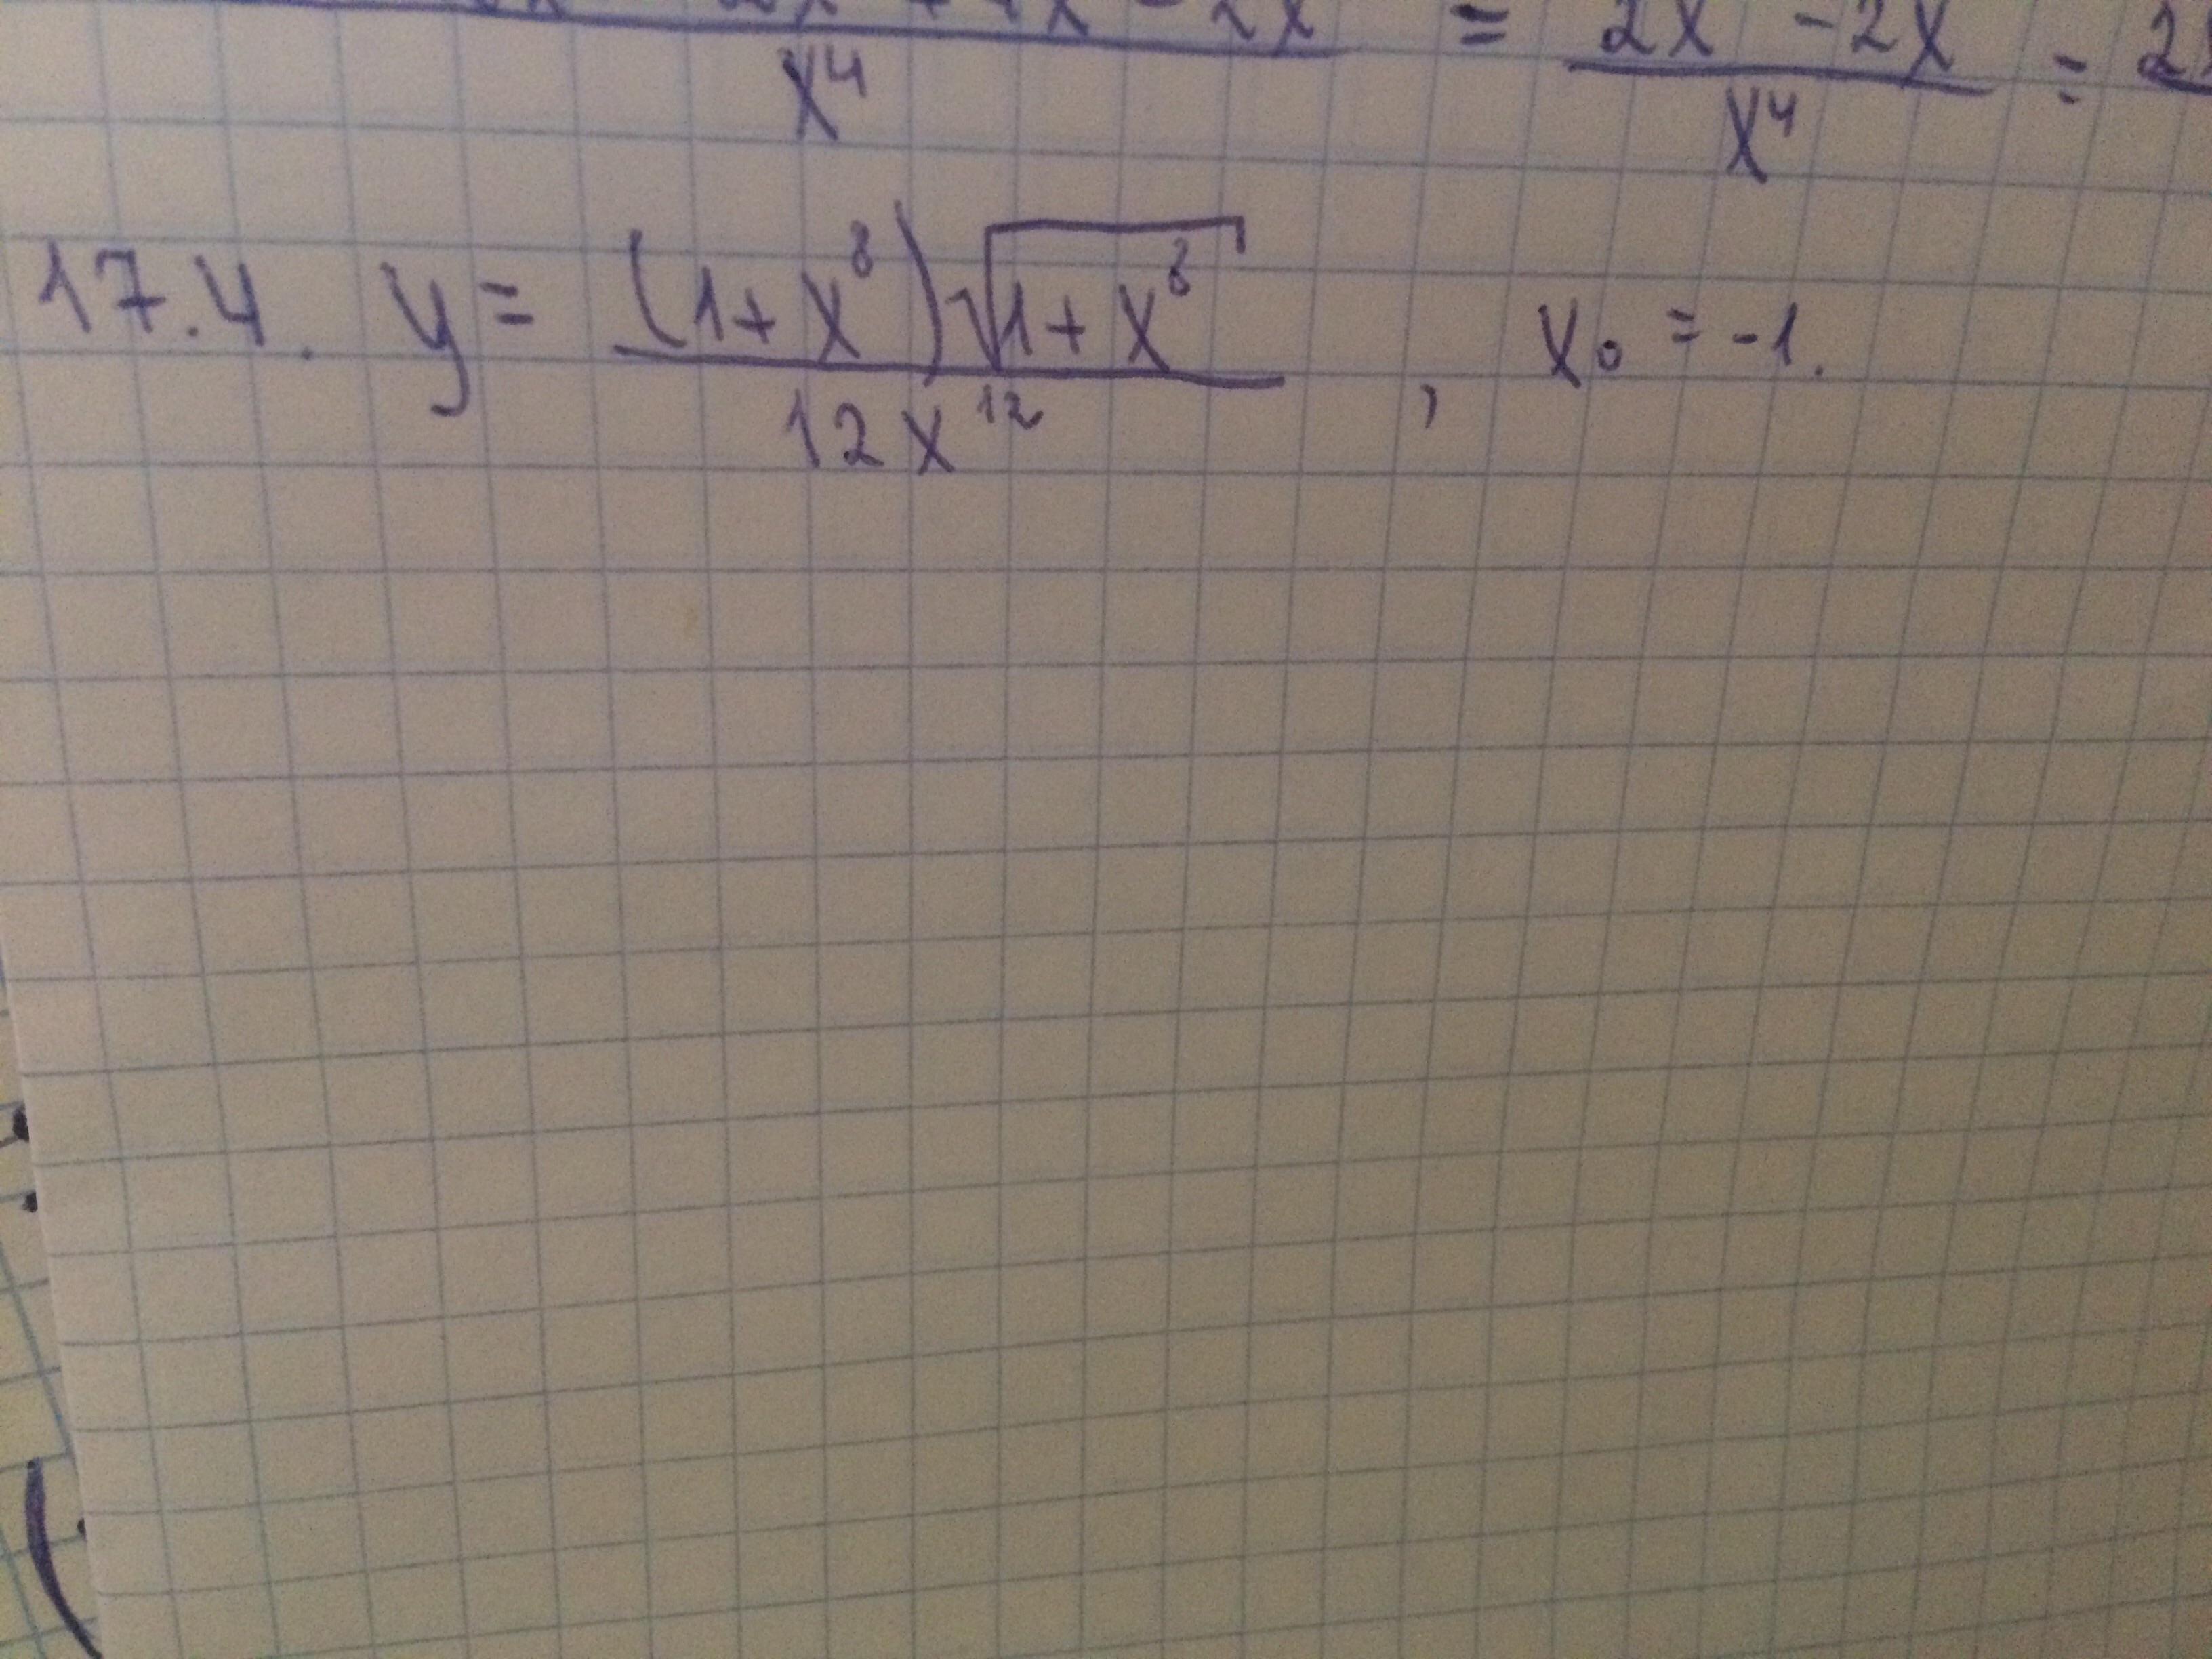 x⁴ = 2x - 2x / x⁴ =
17.4. y = (1 + x⁸)√(1 + x⁸) / 12x¹² , x₀ = -1.